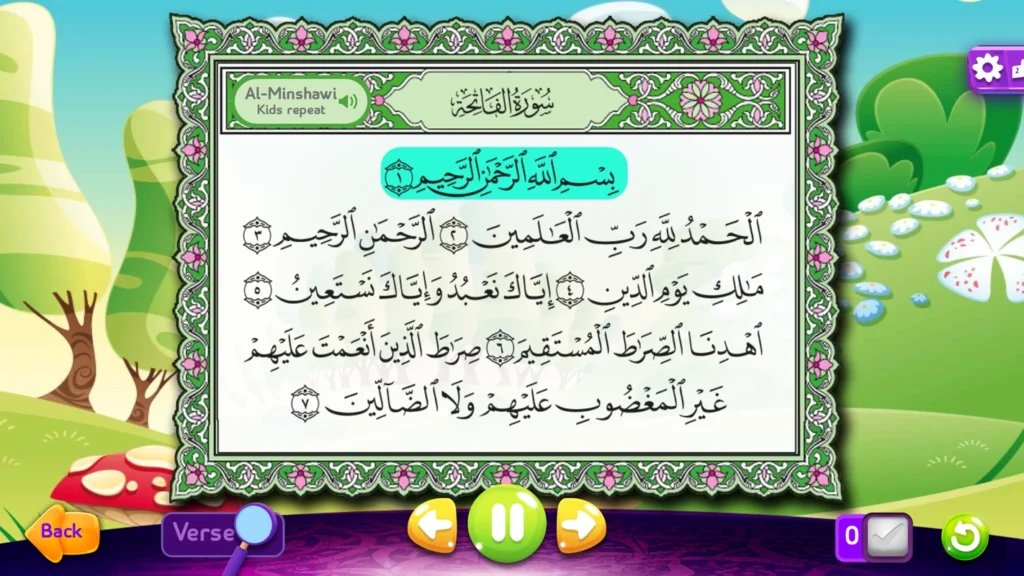 Al-Minshawi
Kids repeat
سُورَةُ الْفَاتِحَةِ
2
بِسْمِ ٱللَّهِ ٱلرَّحْمَٰنِ ٱلرَّحِيمِ ١
ٱلْحَمْدُ لِلَّهِ رَبِّ ٱلْعَٰلَمِينَ ٢ ٱلرَّحْمَٰنِ ٱلرَّحِيمِ ٣
مَٰلِكِ يَوْمِ ٱلدِّينِ ٤ إِيَّاكَ نَعْبُدُ وَإِيَّاكَ نَسْتَعِينُ ٥
ٱهْدِنَا ٱلصِّرَٰطَ ٱلْمُسْتَقِيمَ ٦ صِرَٰطَ ٱلَّذِينَ أَنْعَمْتَ عَلَيْهِمْ
غَيْرِ ٱلْمَغْضُوبِ عَلَيْهِمْ وَلَا ٱلضَّآلِّينَ ٧
Back
Verse
0